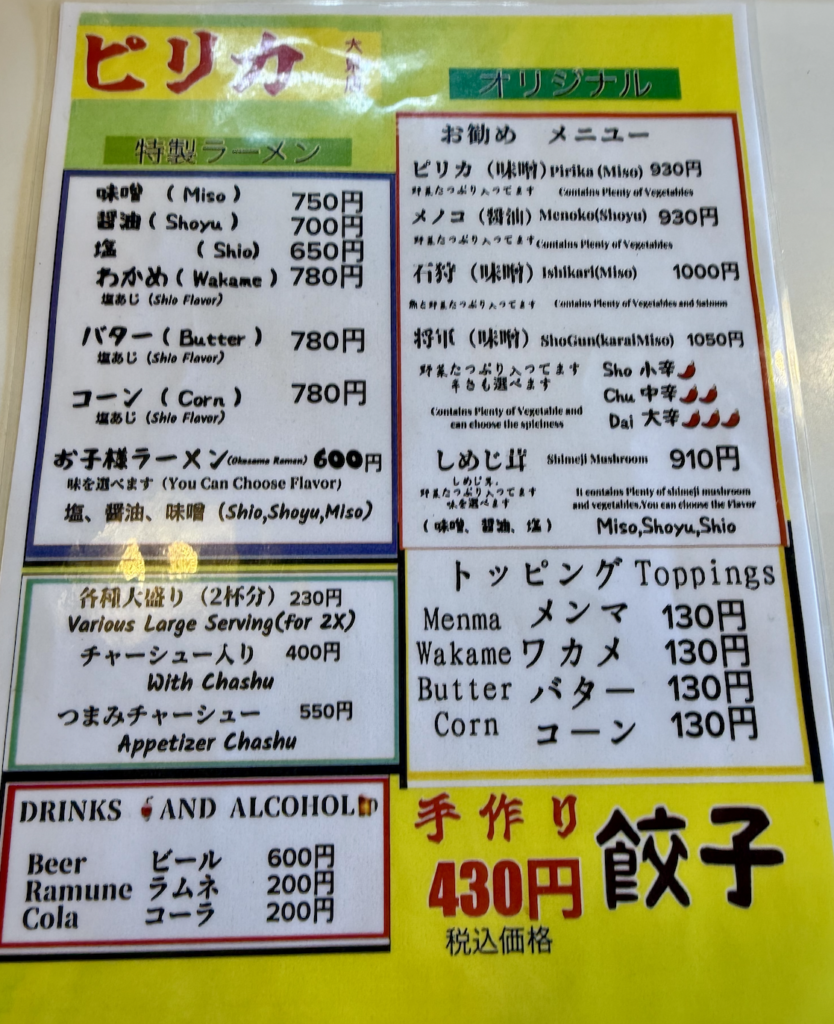 ピリカ
特製ラーメン
味噌 (Miso) 750円
醤油 (Shoyu) 700円
塩 (Shio) 650円
わかめ (Wakame) 780円
塩あじ (Shio Flavor)
バター (Butter) 780円
塩あじ (Shio Flavor)
コーン (Corn) 780円
塩あじ (Shio Flavor)
お子様ラーメン(Okosama Ramen) 600円
味を選べます (You Can Choose Flavor)
塩、醤油、味噌 (Shio,Shoyu,Miso)
各種大盛り (2杯分) 230円
Various Large Serving(for 2X)
チャーシュー入り 400円
With Chashu
つまみチャーシュー 550円
Appetizer Chashu
DRINKS AND ALCOHOL
Beer ビール 600円
Ramune ラムネ 200円
Cola コーラ 200円
オリジナル
お勧め メニュー
ピリカ (味噌) Pirika (Miso) 930円
野菜たっぷり入ってます Contains Plenty of Vegetables
メノコ (醤油) Menoko(Shoyu) 930円
野菜たっぷり入ってます Contains Plenty of Vegetables
石狩 (味噌) Ishikari(Miso) 1000円
鮭と野菜たっぷり入ってます Contains Plenty of Vegetables and Salmon
将軍 (味噌) ShoGun(karaiMiso) 1050円
野菜たっぷり入ってます
辛さも選べます
Contains Plenty of Vegetable and
can choose the spiciness
Sho 小辛
Chu 中辛
Dai 大辛
しめじ茸 Shimeji Mushroom 910円
しめじ茸、
野菜たっぷり入ってます
味を選べます
It contains Plenty of shimeji mushroom
and vegetables.You can choose the Flavor
(味噌、醤油、塩) Miso,Shoyu,Shio
トッピング Toppings
Menma メンマ 130円
Wakame ワカメ 130円
Butter バター 130円
Corn コーン 130円
手作り 餃子
430円
税込価格